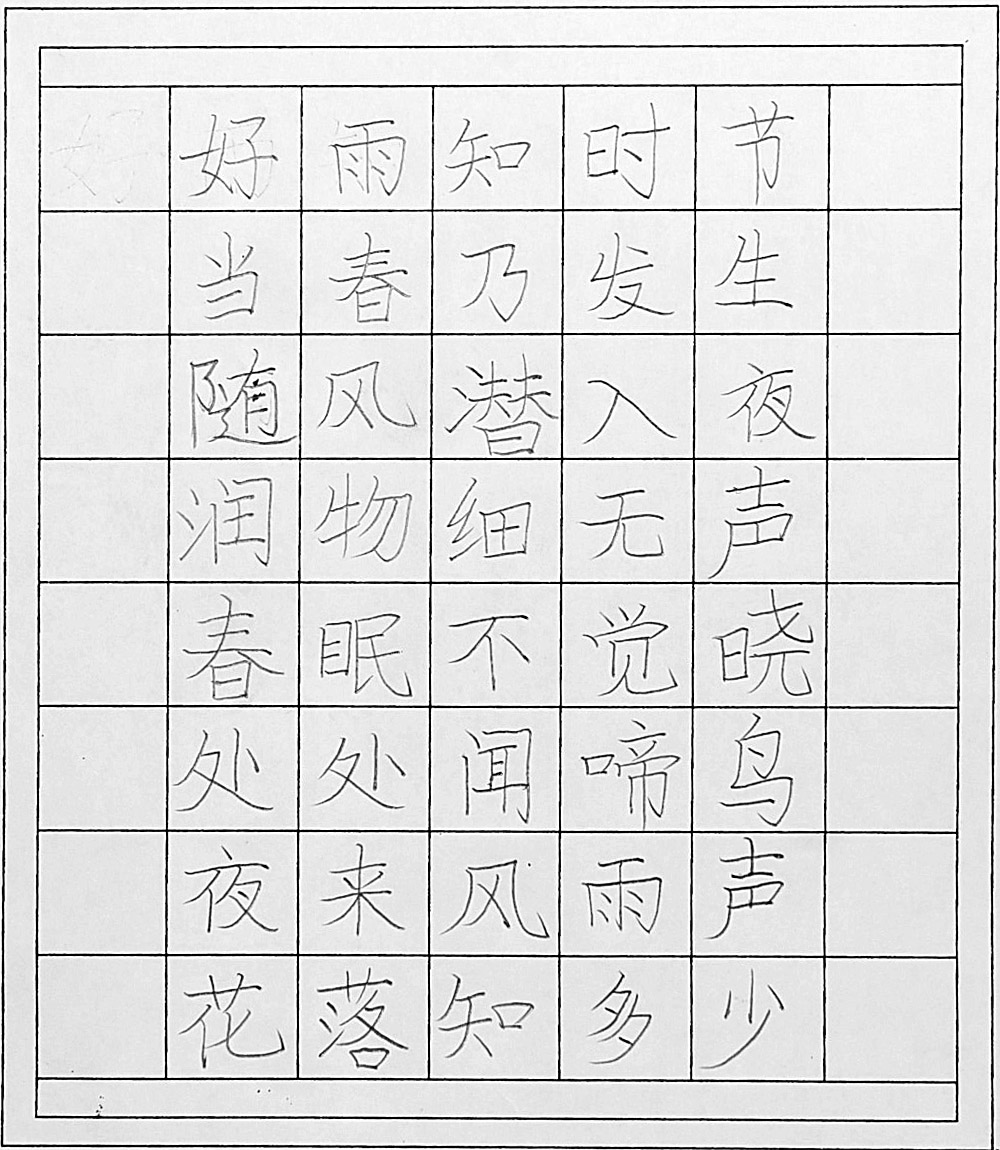 好雨知时节
当春乃发生
随风潜入夜
润物细无声
春眠不觉晓
处处闻啼鸟
夜来风雨声
花落知多少